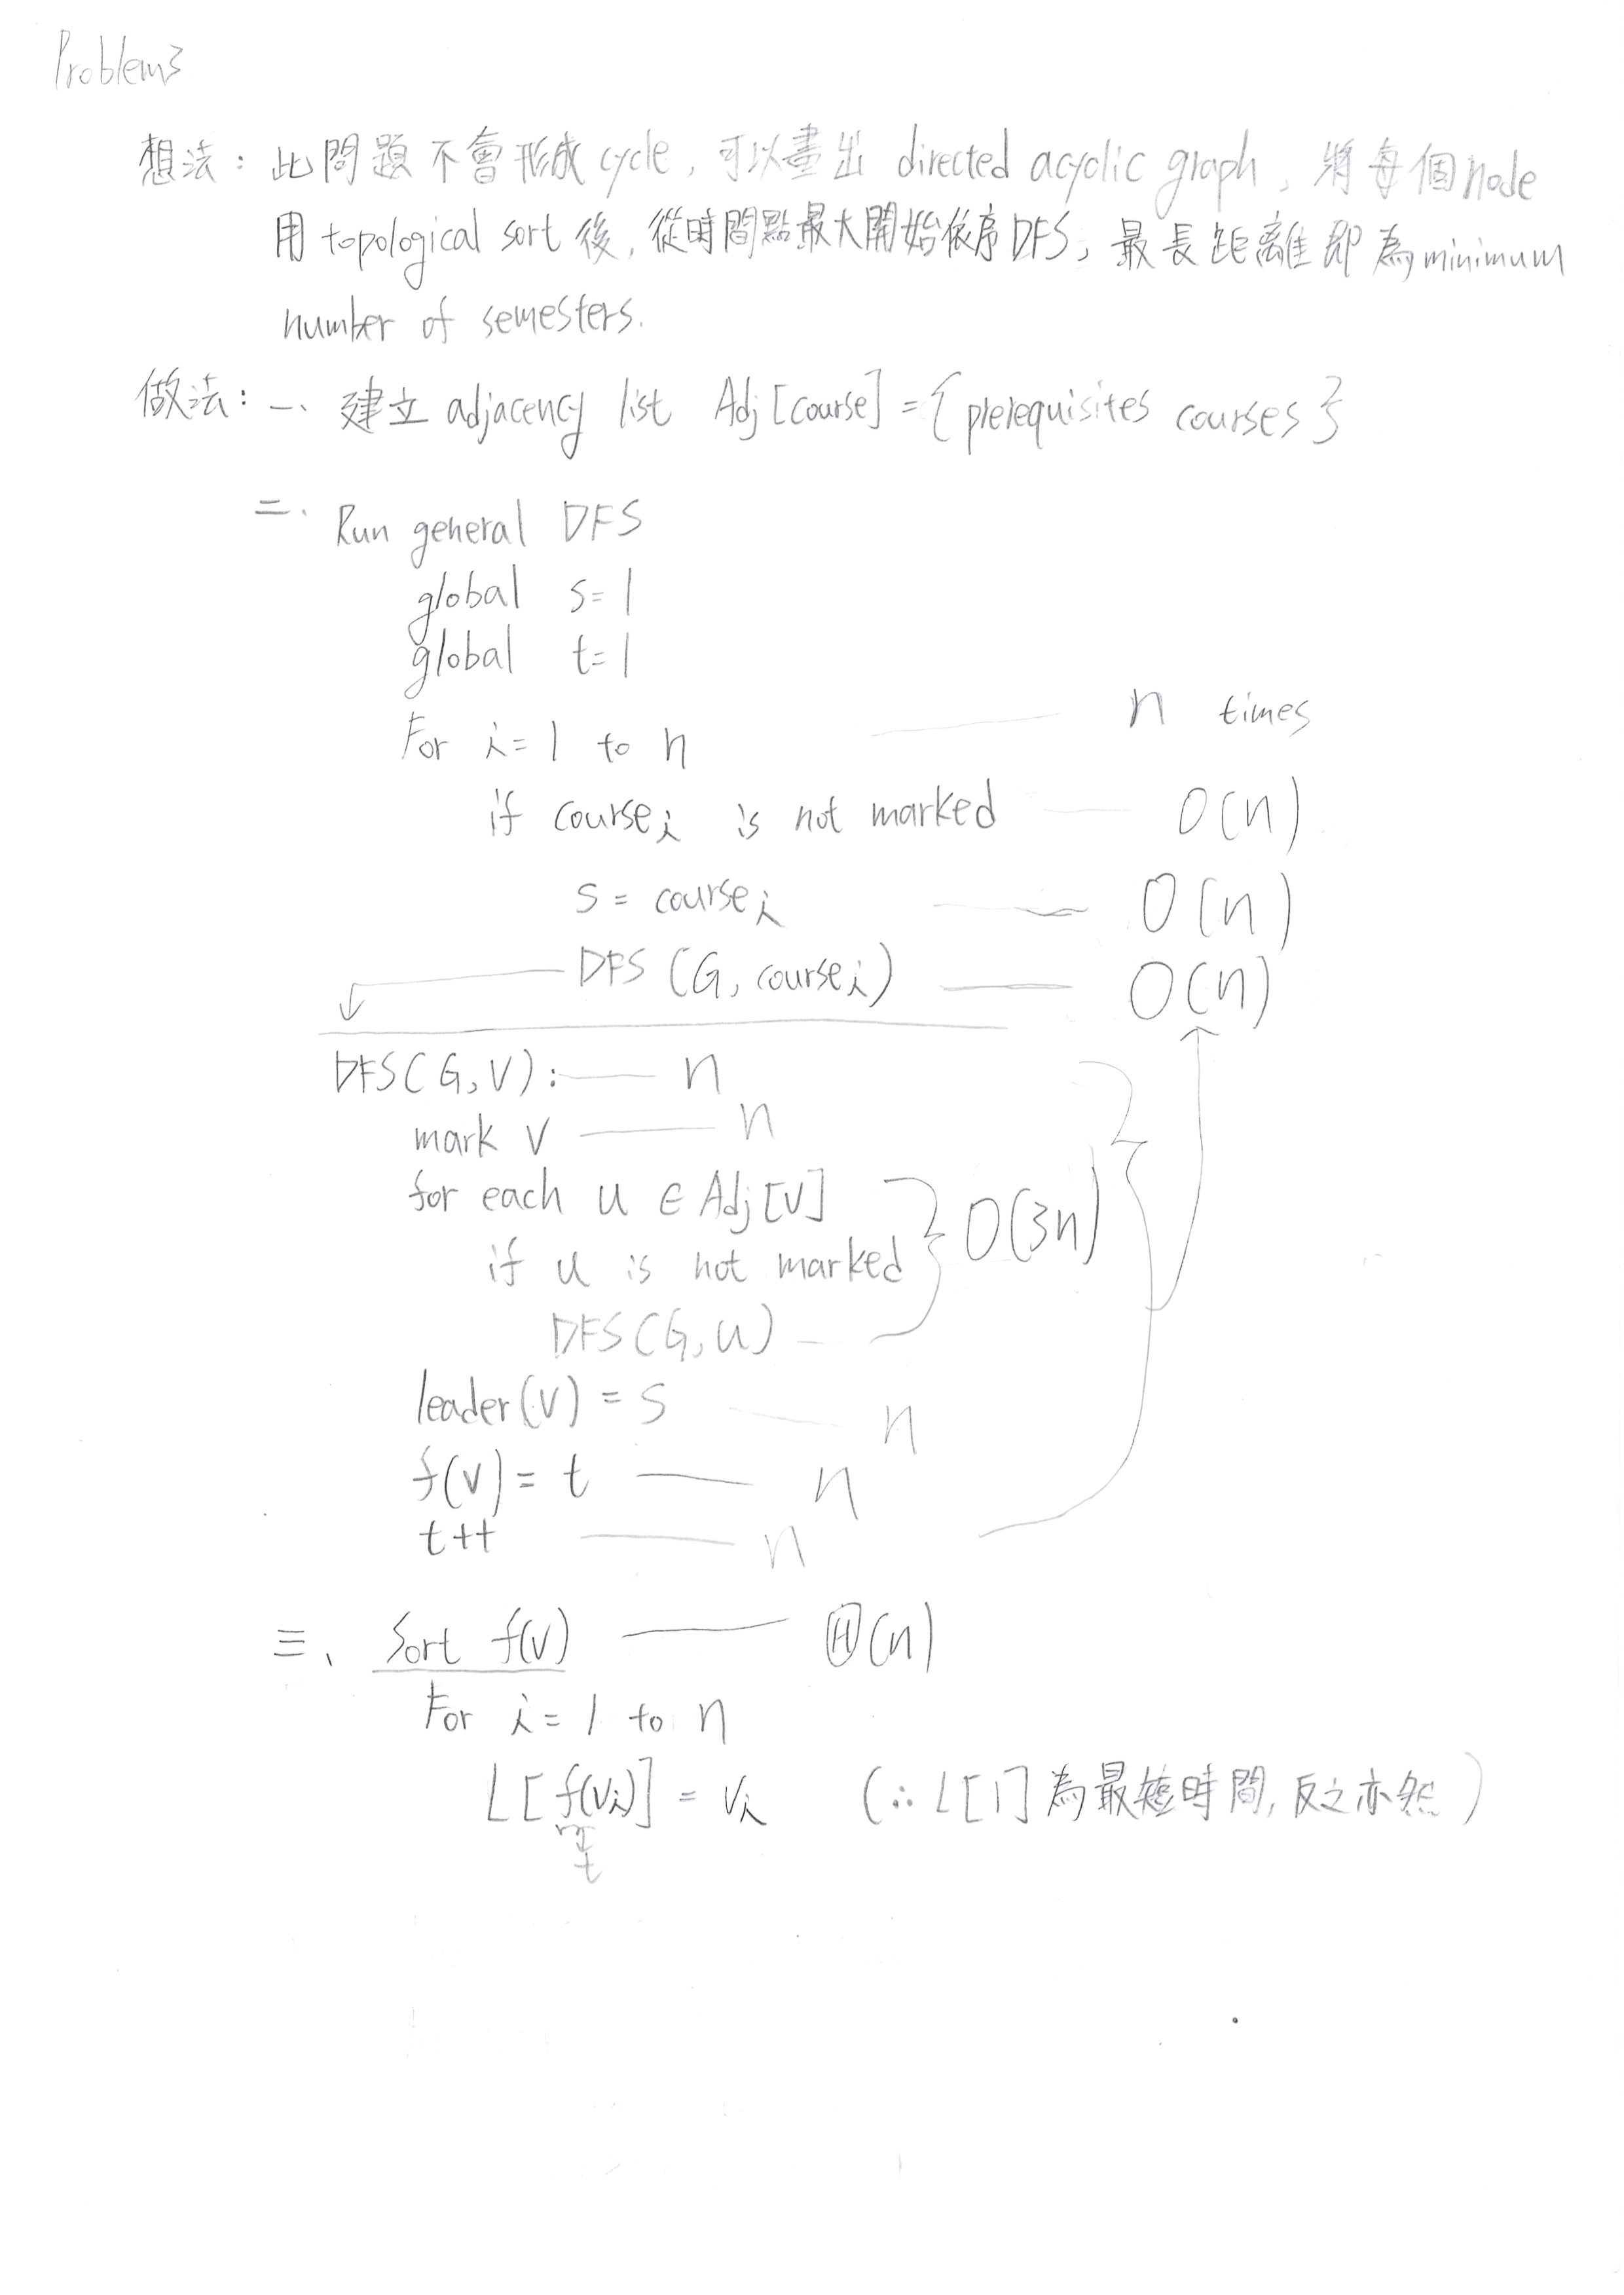 Problem3
想法: 此問題不會形成cycle, 可以畫出 directed acyclic graph, 將每個node
用 topological sort 後, 從時間點最大開始依序DFS, 最長距離即為minimum
number of semesters.
做法: 一、建立 adjacency list Adj[course] = {prerequisites courses}
二、Run general DFS
global s=1
global t=1
For i=1 to n —— n times
if courseᵢ is not marked —— O(n)
s = courseᵢ —— O(n)
DFS (G, courseᵢ) —— O(n)
DFS(G, V): —— n
mark V —— n
for each u ∈ Adj[v]
if u is not marked } O(3n)
DFS(G, u)
leader(v) = s —— n
f(v) = t —— n
t++ —— n
三、Sort f(v) —— Ⓗ(n)
For i=1 to n
L[f(vᵢ)] = vᵢ (∴ L[1] 為最短時間, 反之亦然)
t